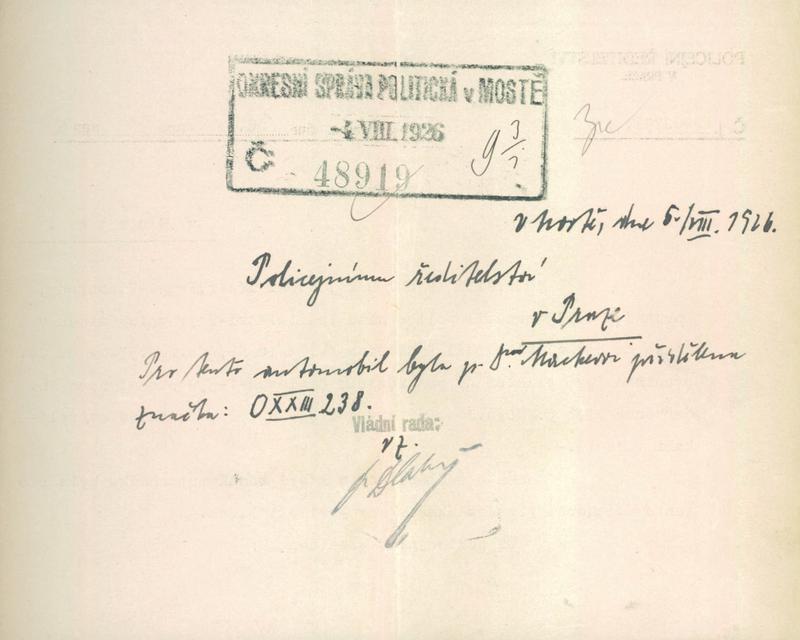 OKRESNÍ SPRÁVA POLITICKÁ v MOSTĚ
-4 VIII. 1926
Č 48919
9 3/7
V Mostě, dne 6./VIII. 1926.
Policejnímu ředitelství
v Praze
Pro tento automobil byla p. Drovi přidělena
značka: OXXIII 238.
Vládní rada:
v z.